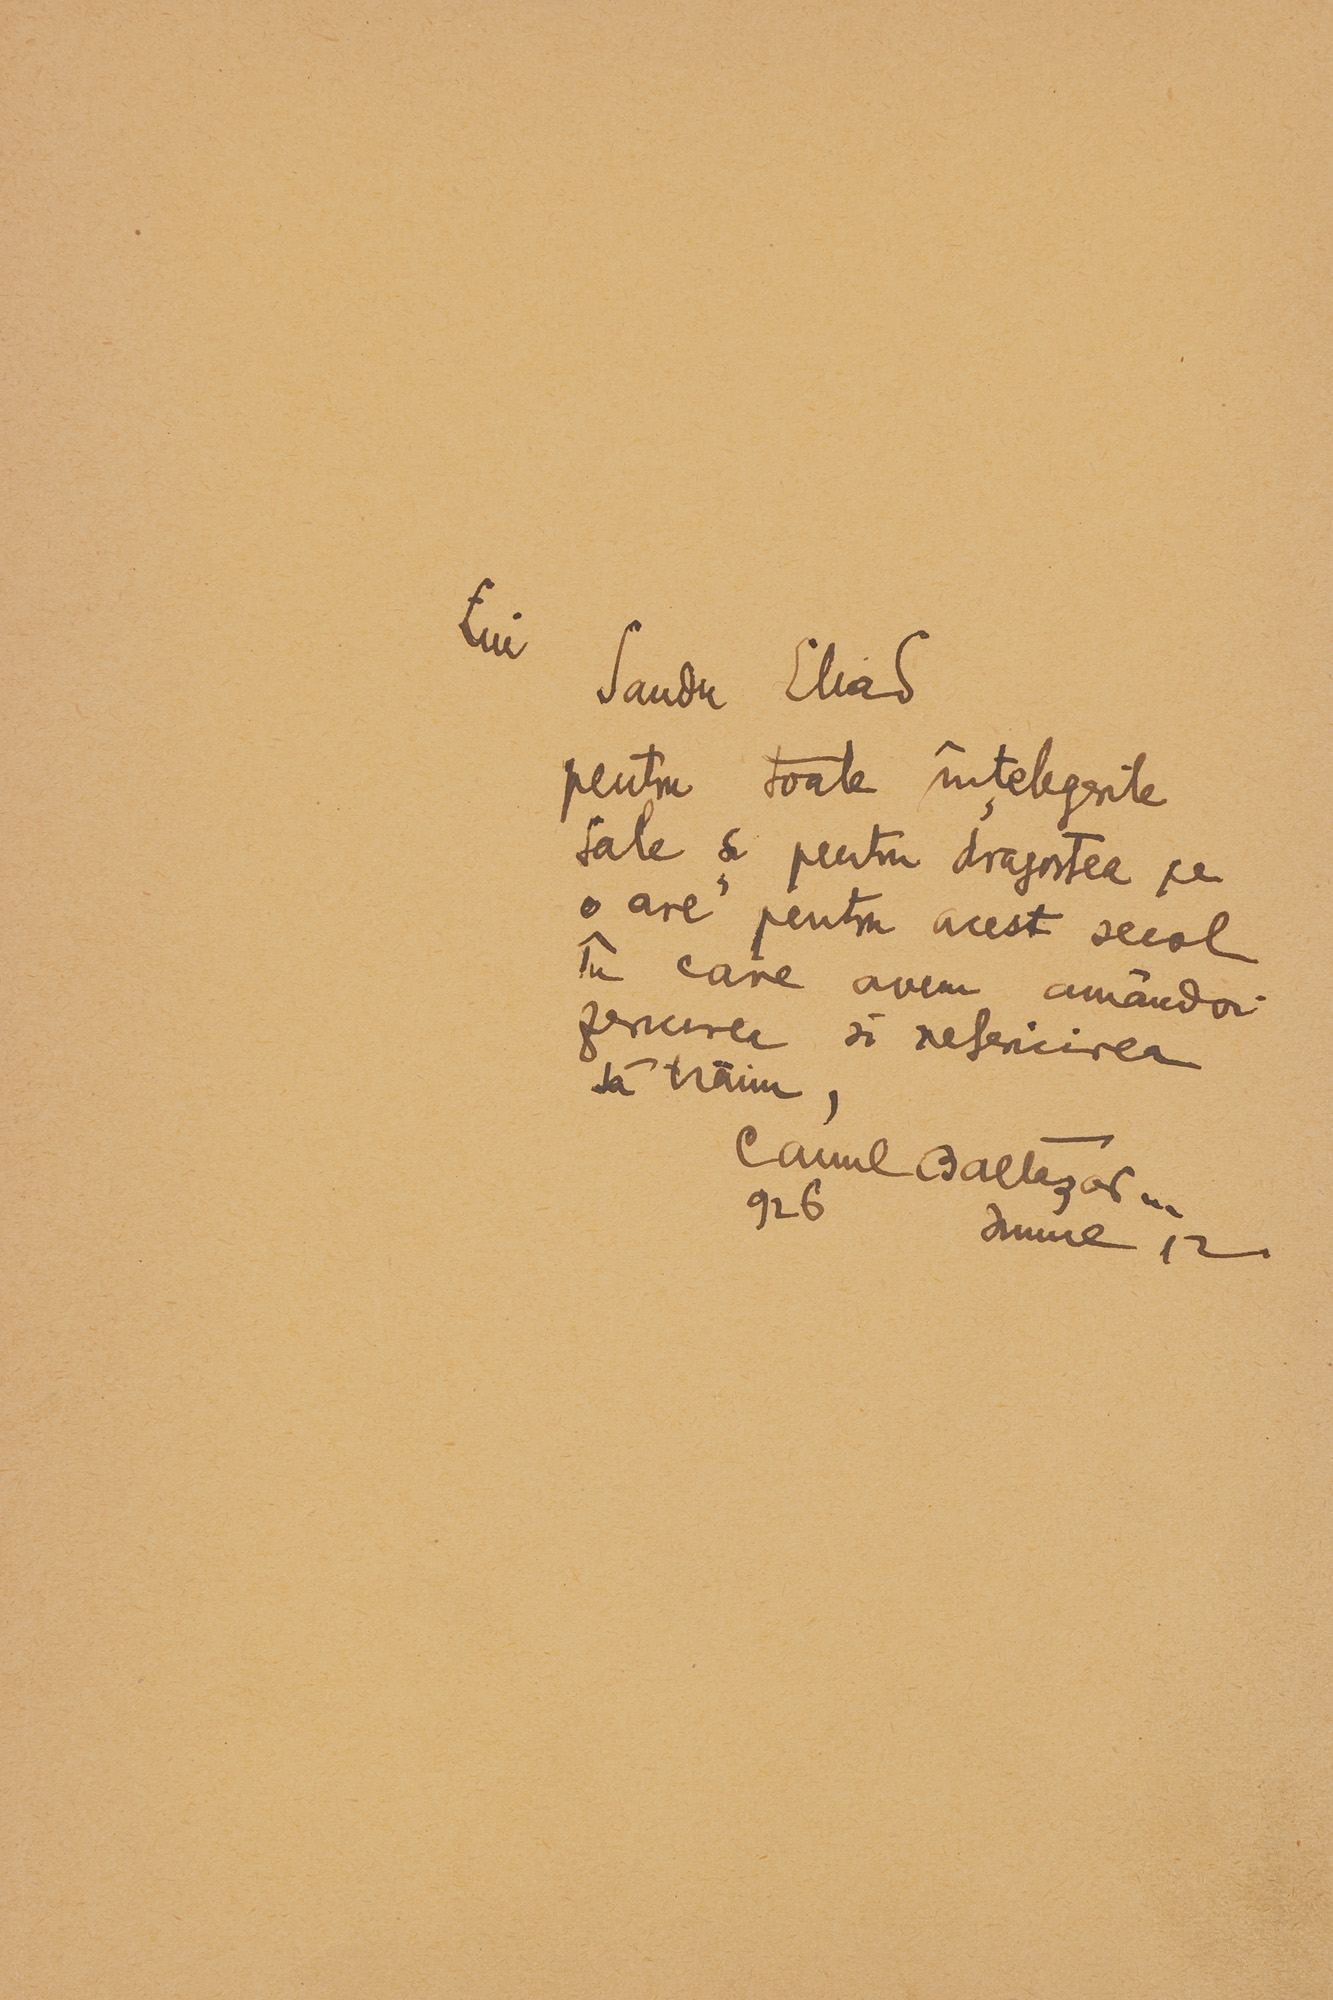 Lui
Sandu Eliad
pentru toate înțelegerile
sale și pentru dragostea pe
o are pentru acest secol
în care avem amândoi
fericirea și nefericirea
să trăim,
Camil Baltazar
926 Iunie 12.